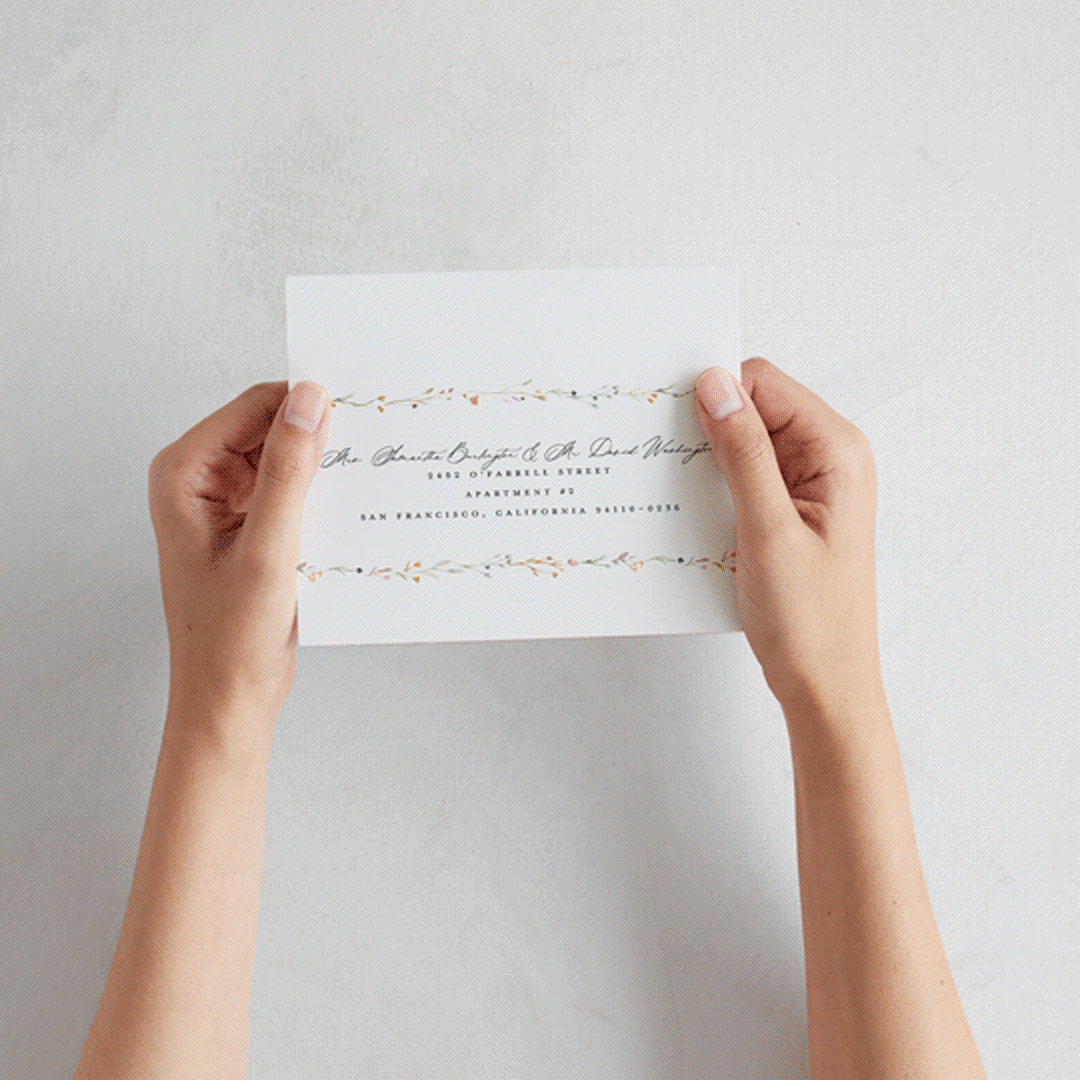 Mrs. Samantha Burlington & Mr. David Washington
2652 O'FARRELL STREET
APARTMENT #2
SAN FRANCISCO, CALIFORNIA 94110-0236